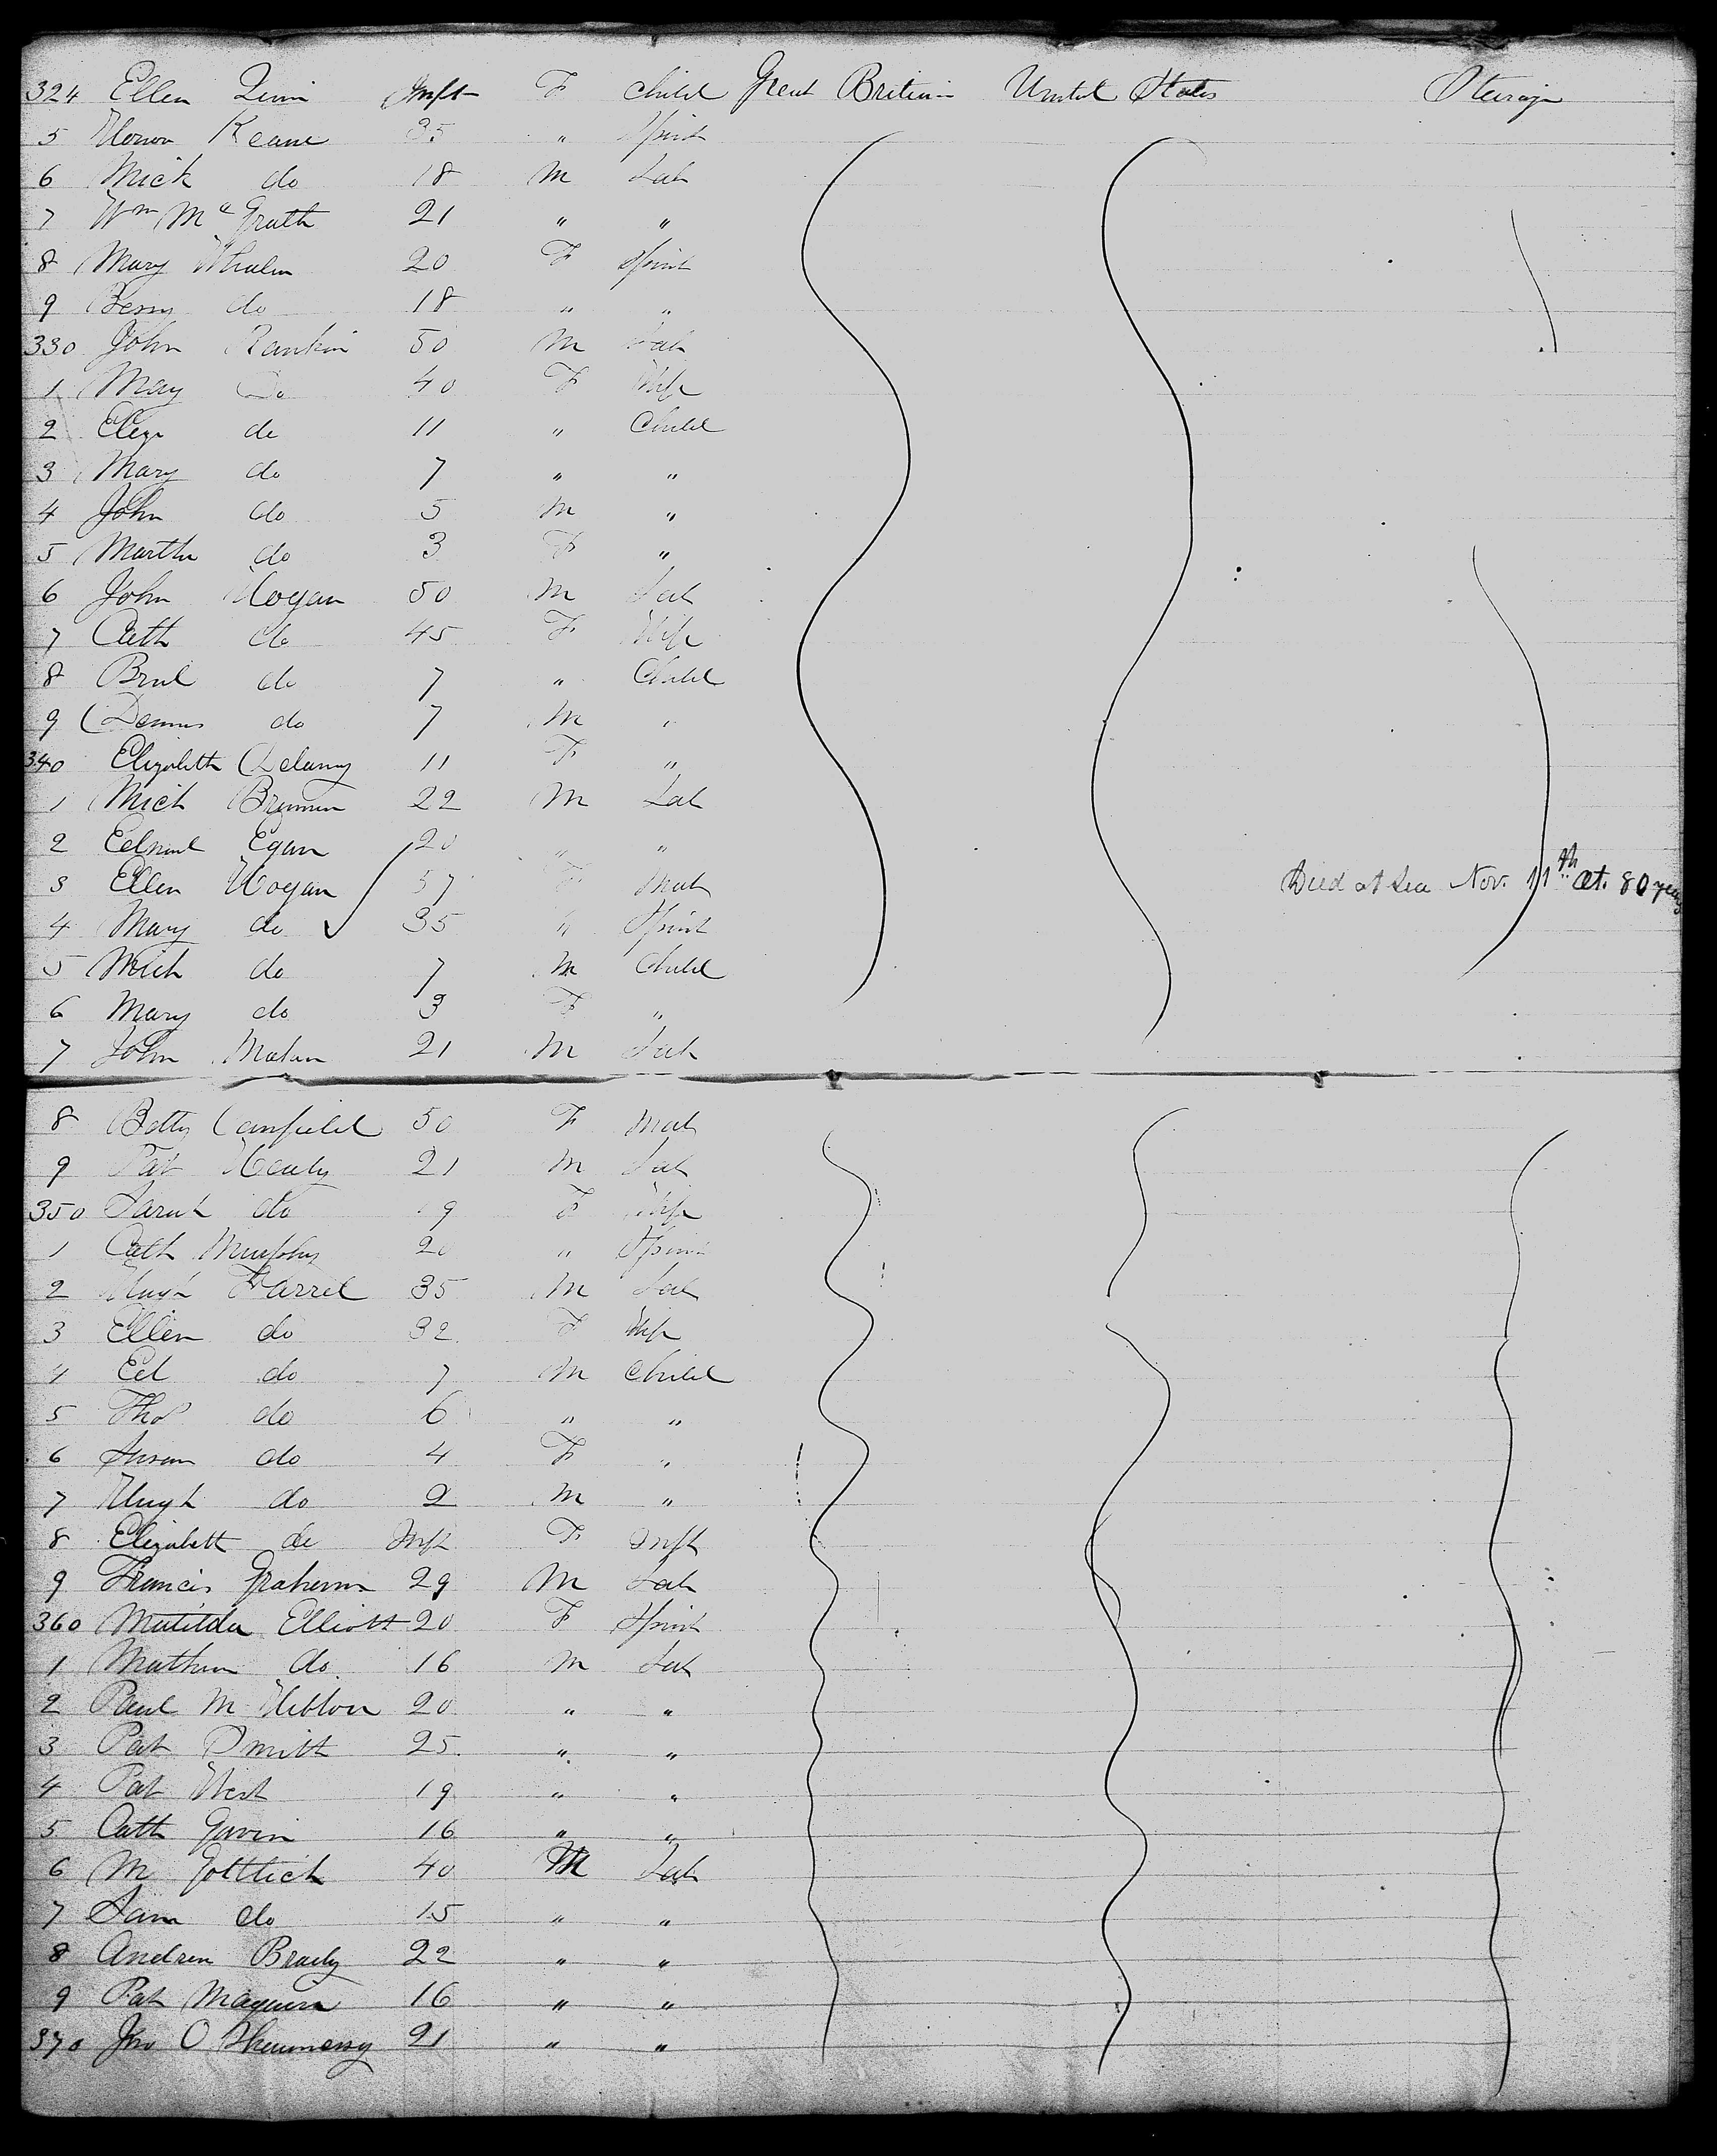 324 Ellen Quin Inft F Child Great Britain United States Steerage
5 Honor Keane 35 " Spinst
6 Mick do 18 M Lab
7 Wm McGrath 21 " "
8 Mary Whalen 20 F Spinst
9 Bessy do 18 " "
330 John Rankin 50 M Lab
1 Mary Do 40 F Wife
2 Eliza do 11 " Child
3 Mary do 7 " "
4 John do 5 M "
5 Martha do 3 F "
6 John Hogan 50 M Lab
7 Cath do 45 F Wife
8 Brid do 7 " Child
9 Dennis do 7 M "
340 Elizabeth Delany 11 F "
1 Mich Brennan 22 M Lab
2 Edmund Egan 20 " "
3 Ellen Hogan 57 F Mat Died at Sea Nov. 11th at. 80 years
4 Mary do 35 " Spinst
5 Mich do 7 M Child
6 Mary do 3 F "
7 John Mahon 21 M Lab
8 Betty Canfield 50 F Mat
9 Pat Healy 21 M Lab
350 Sarah do 19 F Wife
1 Cath Murphy 20 " Spinst
2 Hugh Farrel 35 M Lab
3 Ellen do 32 F Wife
4 Ed do 7 M Child
5 Thos do 6 " "
6 Susan do 4 F "
7 Hugh do 2 M "
8 Elizabeth do Inft F Inft
9 Francis Graham 29 M Lab
360 Matilda Elliott 20 F Spinst
1 Mathew do 16 M Lab
2 Paul M Hiblon 20 " "
3 Pat Smith 25 " "
4 Pat West 19 " "
5 Cath Gavin 16 " "
6 M Gottlick 40 M Lab
7 Sam do 15 " "
8 Andrew Brady 22 " "
9 Pat Maguire 16 " "
370 Jno O Shaunnessy 21 " "